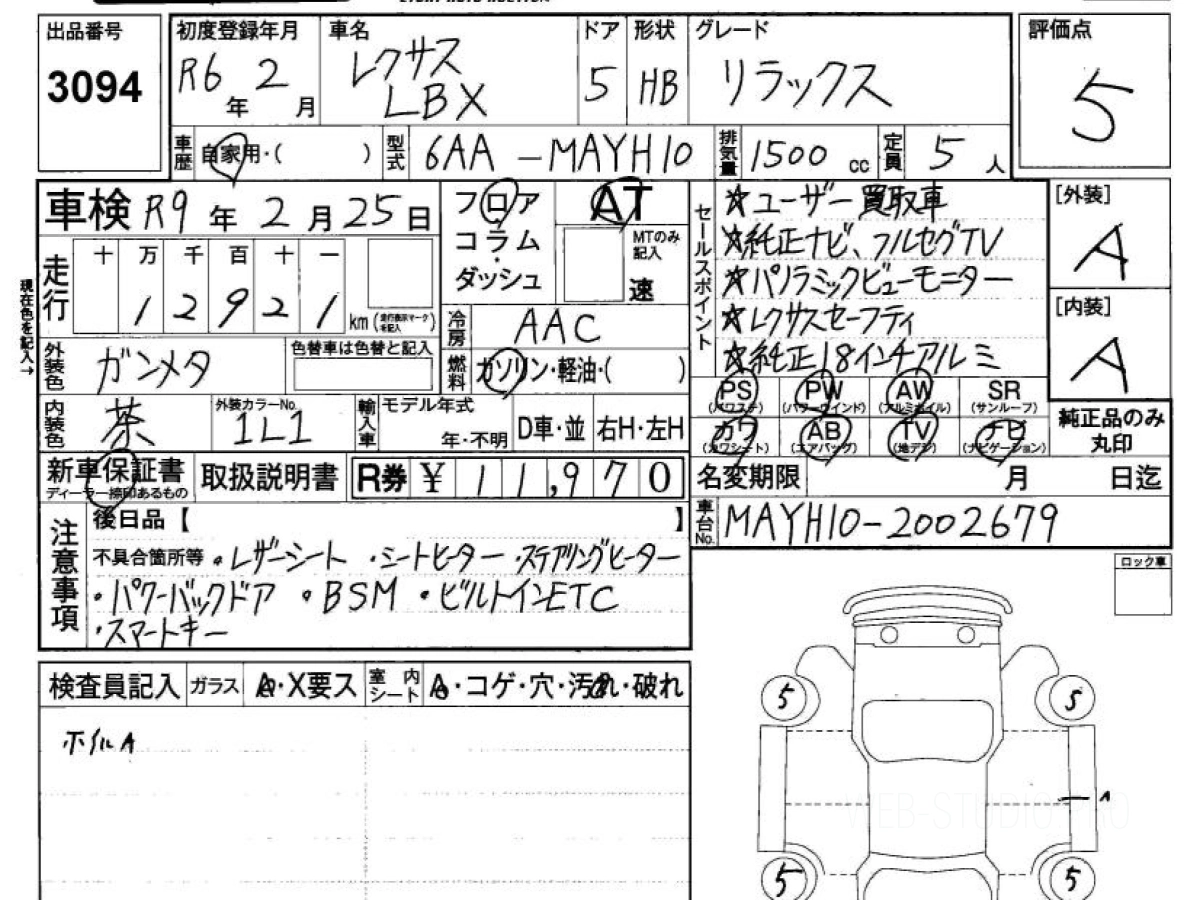 出品番号
3094
初度登録年月
R6年 2月
車名
レクサス
LBX
ドア
5
形状
HB
グレード
リラックス
評価点
5
車歴
自家用・( )
型式
6AA-MAYH10
排気量
1500 cc
定員
5 人
車検 R9年 2月25日
フロア
コラム
ダッシュ
AT
MTのみ記入
速
セールスポイント
☆ユーザー買取車
☆純正ナビ、フルセグTV
☆パノラミックビューモニター
☆レクサスセーフティ
☆純正18インチアルミ
[外装]
A
[内装]
A
現在色を記入→
走行
十 万 千 百 十 一
1 2 9 2 1
km (走行表示マークを記入)
冷房
AAC
外装色
ガンメタ
色替車は色替と記入
燃料
ガソリン・軽油・( )
PS
(パワステ)
PW
(パワーウインド)
AW
(アルミホイル)
SR
(サンルーフ)
カワ
(カワシート)
AB
(エアバッグ)
TV
(地デジ)
ナビ
(ナビゲーション)
純正品のみ
丸印
内装色
茶
外装カラーNo.
1L1
輸入車
モデル年式
年・不明
D車・並
右H・左H
新車保証書
ディーラー捺印あるもの
取扱説明書
R券 ¥ 11,970
名変期限
月 日迄
注意事項
後日品【 】
車台No.
MAYH10-2002679
不具合箇所等 ・レザーシート ・シートヒーター ・ステアリングヒーター
・パワーバックドア ・BSM ・ビルトインETC
・スマートキー
ロック車
検査員記入
ガラス
A・X要ス
室内シート
A・コゲ・穴・汚れ・破れ
ホイルA
5
5
A
WEB-STUDIO.PRO
5
5